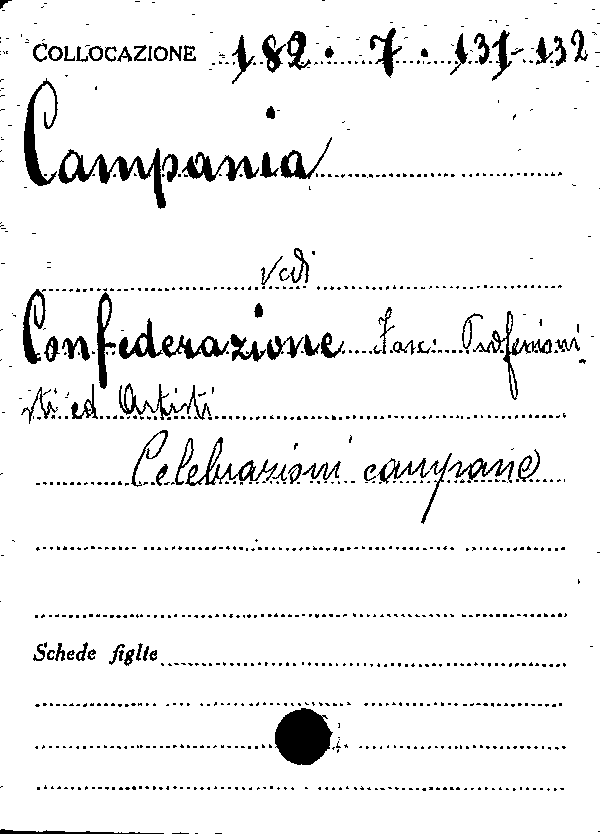 COLLOCAZIONE 182 . 7 . 131-132
Campania
Vedi
Confederazione Fasc: Professioni-
sti ed Artisti
Celebrazioni campane
Schede figlie